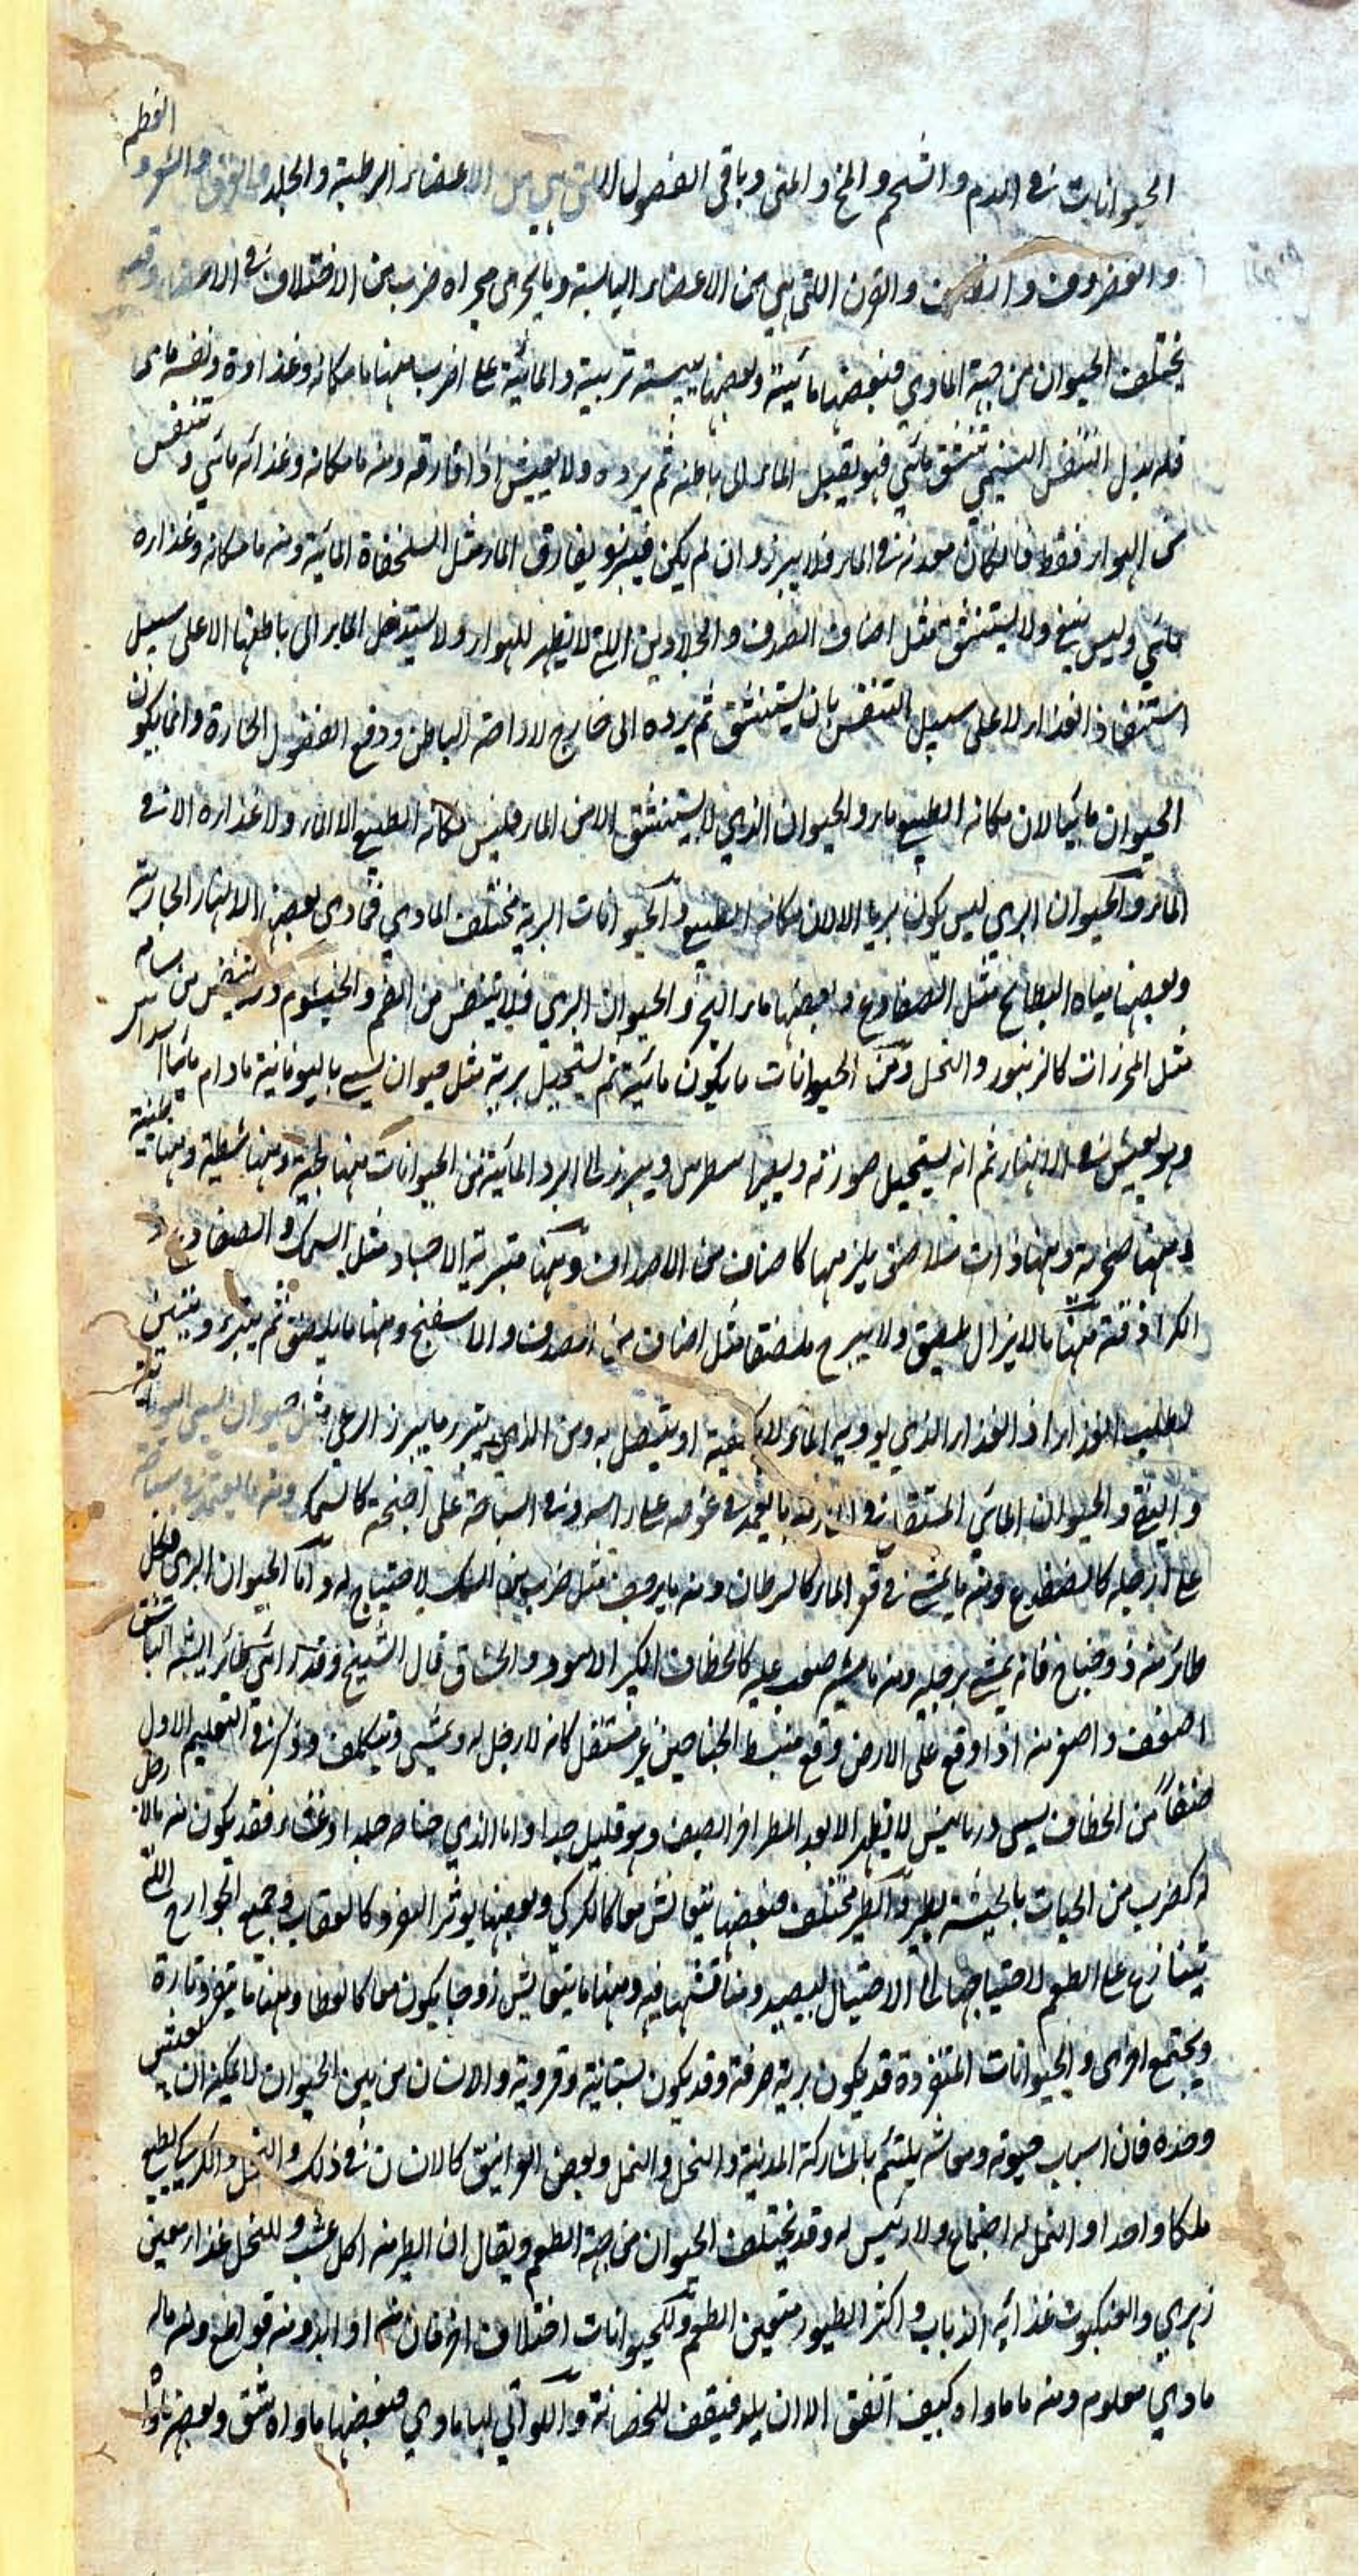 الحيوانات في الدم والشحم والمخ والمني وباقي الفصول التي هي من الاعضاء الرطبة والجلد والعروق والشعر والعظم
والغضروف والظفر والقرن اللتي هي من الاعضاء اليابسة وما يجري مجراه ضرب من الاختلاف في الاعضاء وقد
يختلف الحيوان من جهة الماوي فبعضها مائية وبعضها يبسية تربية والمائية على اضرب منها ما مكانه وغذاوه ونفسه مائي
فله بدل التنفس النسيمي تنشق مائي فهو يقبل الماء الى باطنه ثم يرده ولا يعيش اذا فارقه ومنه ما مكانه وغذائه مائي وتنفس
من الهواء فقط فما كان معدنه في الماء فلا يبرز وان لم يكن فيبرز ويفارق الماء مثل السلحفاة المائية ومنه ما مكانه وغذاره
مائي وليس يتنفس ولا يستنشق مثل اصناف الصدف والحلازين اللتي لا تظهر للهواء ولا يستدخل الماء الى باطنها الا على سبيل
استنفاذ الغذاء لا على سبيل التنفس بان يستنشق ثم يرده الى خارج لاراحة الباطن ودفع الفضول الحارة وانما يكون
الحيوان مائيا لان مكانه الطبيعي ماء والحيوان الذي لا يستنشق الا من الماء فليس مكانه الطبيعي الا الماء ولا غذاره الا في
الماء والحيوان البري ليس يكون بريا الا لان مكانه الطبيعي والحيوانات البرية مختلف الماوي فماوى بعضها الانهار الجارية
وبعضها مياه البطائح مثل الضفادع وبعضها ماء البحر والحيوان البري فلا يتنفس من الفم والخيشوم ومنه يتنفس من مسامه
مثل المحرزات كالزنبور والنحل ومن الحيوانات ما يكون مائية ثم يستحيل برية مثل حيوان يسمى باليونانية ما دام مائيا
وهو يعيش في الانهار ثم انه يستحيل صورته ويصير اسطرس ويبرز الى البر والمائية من الحيوانات منها لجية ومنها شطية ومنها طينية
ومنها صخرية ومنها ذات ملاصق يلزمها كاصناف من الاصداف ومنها متبرية الاجساد مثل السمك والضفادع
الكراذقة منها ما لا يزال يلصق ولا يبرح ملتصقا مثل اصناف من الصدف والاسفنج ومنها ما يلصق ثم يتبرء ويتبين
لطلب الغذاء اذ الغذاء الذي يورده الماء لا يكفيه او يتصل به ومن الذي يتبرء ما يبرز لرعي مثل حيوان يسمى
والحيوان المائي المتنقل في الماء منه ما يعتمد في غوصه على راسه وفي السباحة على اجنحة كالسمك ومنه ما يعتمد في سباحة
على ارجله كالضفدع ومنه ما يمشي في قعر الماء كالسرطان ومنه ما يزحف مثل ضرب من السمك لا جناح له واما الحيوان البري فكل
طائر منه ذو جناح فانه يمشي برجليه ومنه ما مشيه صعب عليه كالخطاف الكبير الاسود والخشاف قال الشيخ وقد رايت طائرا يشبه الباشق
اضعف واصغر منه اذا وقع على الارض وقع منبسط الجناحين غير مستقل كانه لا رجل له ويمشي ويتكلف وذكر في التعليم الاول
صنفاً من الخطاف يسمى درنانيس لا يظهر الا بعد المطر اخر الصيف وهو قليل جدا واما الذي جناحه جلد او غشاء فقد يكون منه ما لا رجل
له كضرب من الحيات بالحبشة يطير والطير مختلف فبعضها يتعايش معا كالكركي وبعضها يوثر التفرد كالعقاب وجميع الجوارح اللتي
يتنازع على الطعم لاحتياجها الى الاحتيال ليصيد ومناقشتها فيه ومنها ما يتعايش زوجا يكون معا كالقطا ومنها ما ينفرد تارة
ويجتمع اخرى والحيوانات المتفردة قد يكون برية صرفة وقد يكون بستانية وقروية والانسان من بين الحيوان لا يمكنه ان يعيش
وحده فان اسباب حيوته ومعاشه يلتئم بالمشاركة المدنية والنحل والنمل وبعض الغرانيق كالانسان في ذلك والنحل والكركي يطيع
ملكا واحدا والنمل له اجتماع ولا رئيس له وقد يختلف الحيوان من جهة الطعم ويقال ان الطير منه اكل عشب وللنحل غذاء معين
زهري والعنكبوت غذايه الذباب واكثر الطيور متعين الطعم وللحيوانات اختلاف اخر فان منه اوابد ومنه قواطع ومنه ماله
ماوي معلوم ومنه ما ماواه كيف اتفق الا ان يلد فيقف للحضانة واللواتي لها ماوي فبعضها ماواه شق وبعضها ماواه